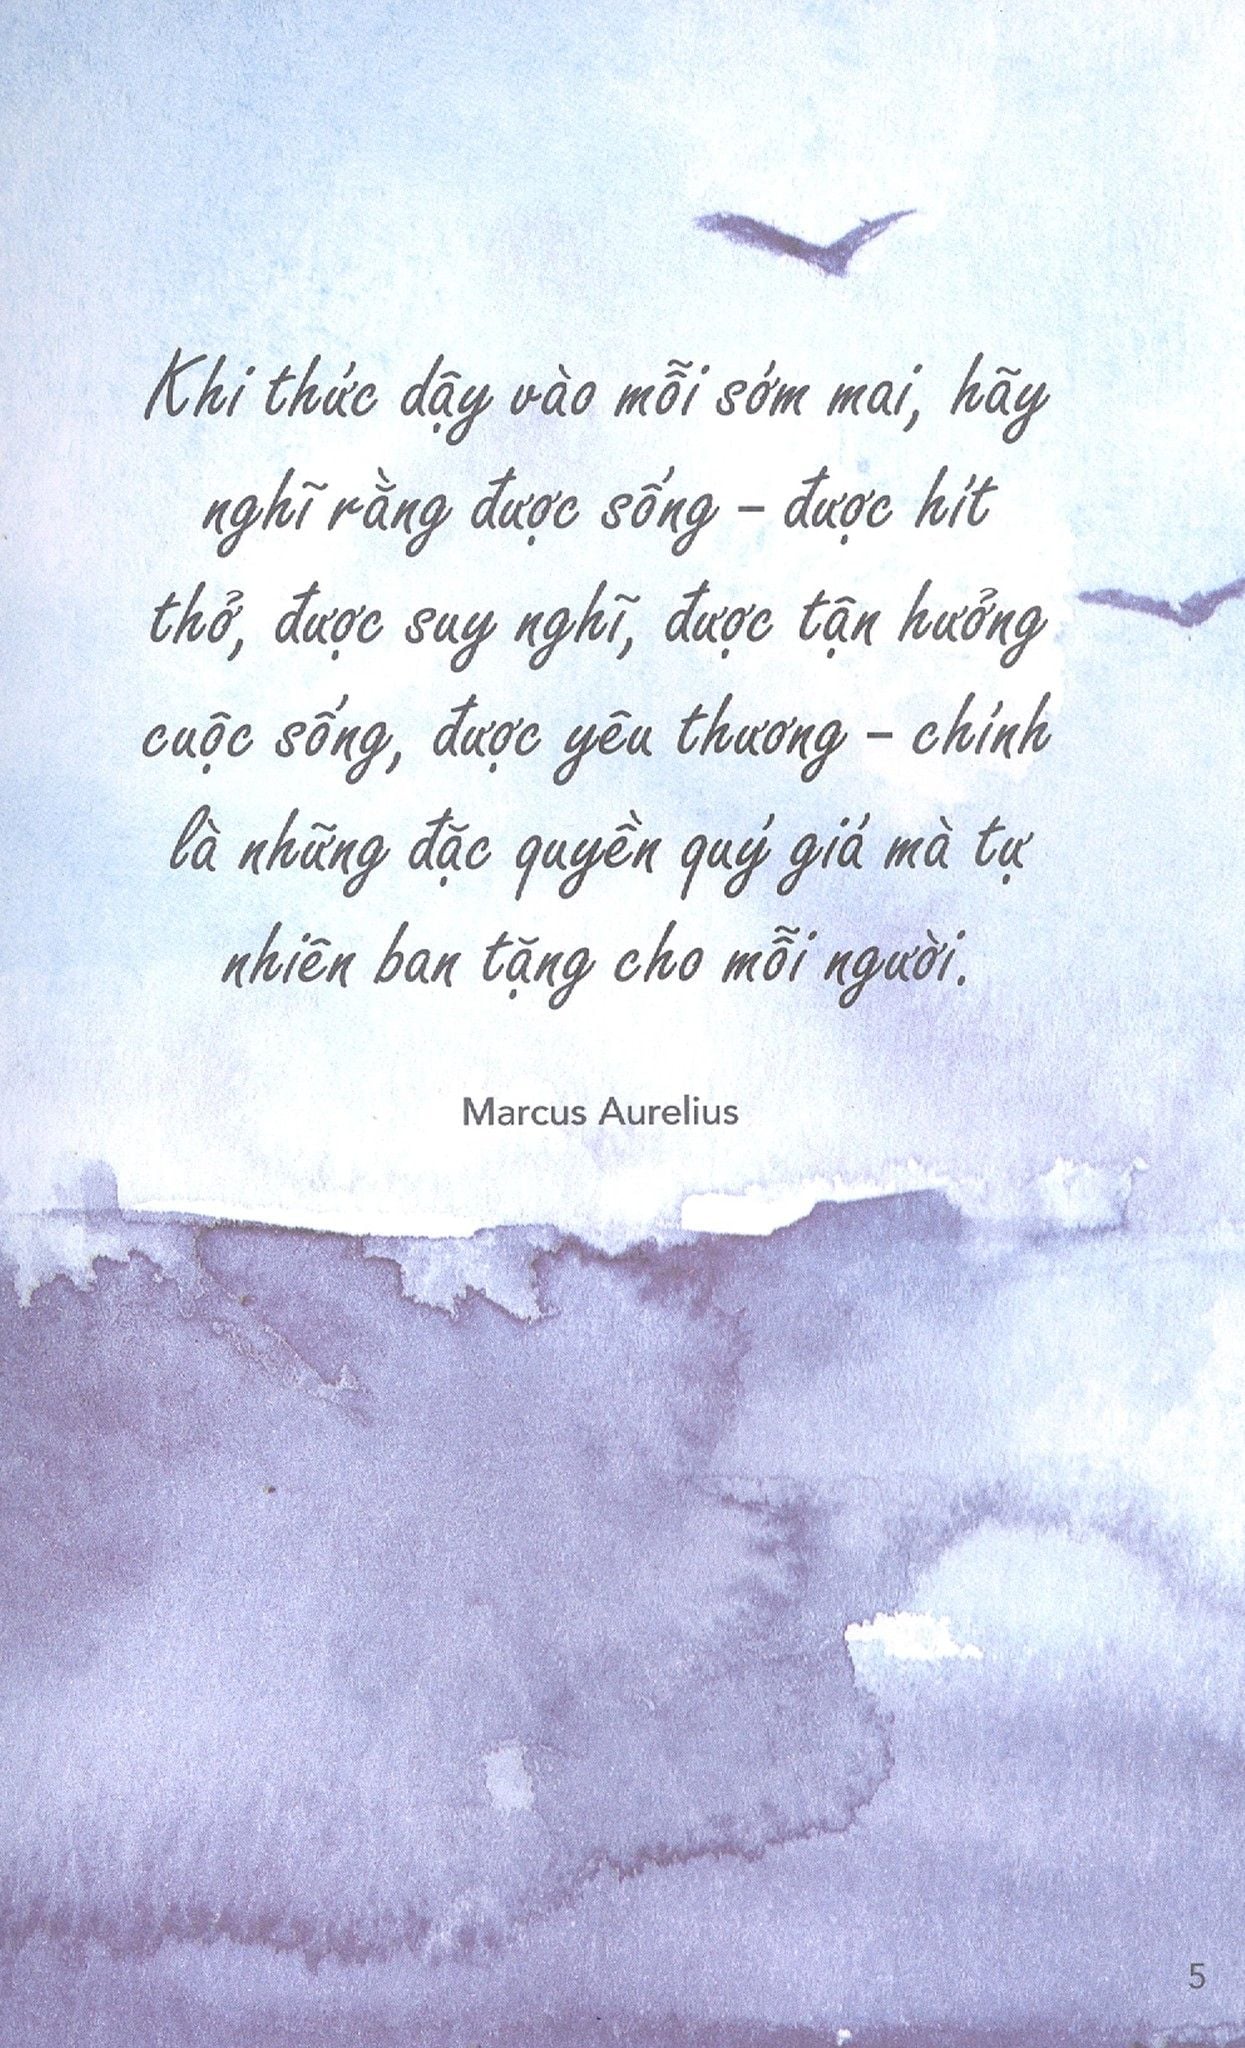 Khi thức dậy vào mỗi sớm mai, hãy
nghĩ rằng được sống – được hít
thở, được suy nghĩ, được tận hưởng
cuộc sống, được yêu thương – chính
là những đặc quyền quý giá mà tự
nhiên ban tặng cho mỗi người.
Marcus Aurelius
5